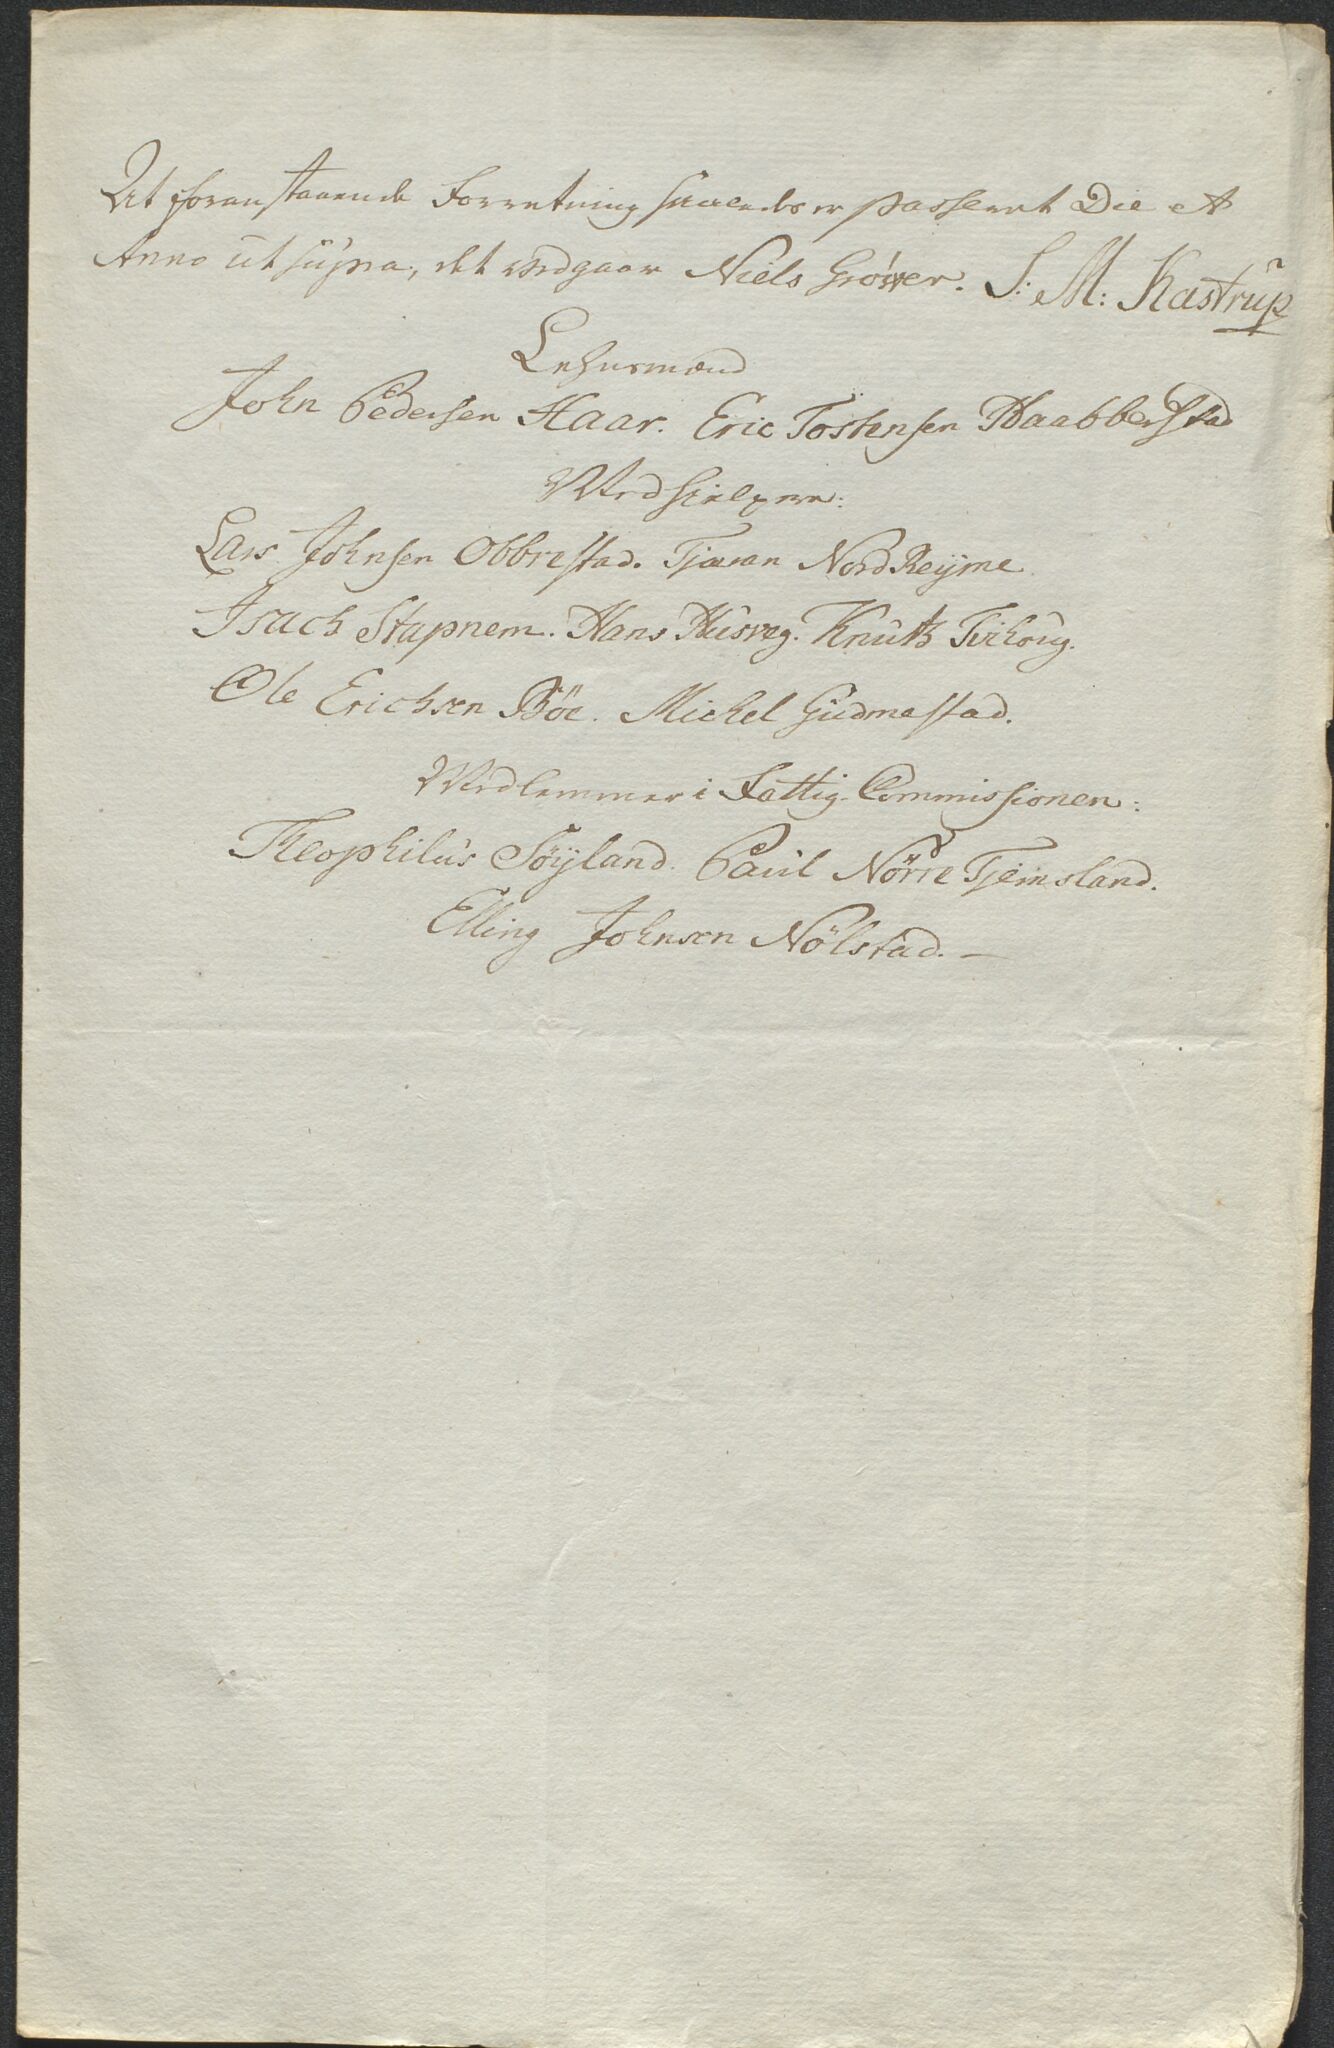 At foranstaaende Forretning saaledes er passeret Die et
Anno ut supra, det vedgaar Niels Gröwer. S: M: Kastrup
Lehnsmænd
John Pedersen Haar. Eric Tostensen Haabberstad
Medhielpere:
Lars Johnsen Obbrestad. Tjæran Nord Reÿme
Isach Stapnem. Hans Husveg. Knuth Tvihoug.
Ole Erichsen Böe. Michel Gudmestad.
Medlemmer i Fattig-Commissionen:
Theophilus Söÿland. Paul Nörre Tjemsland.
Elling Johnsen Nölstad. —